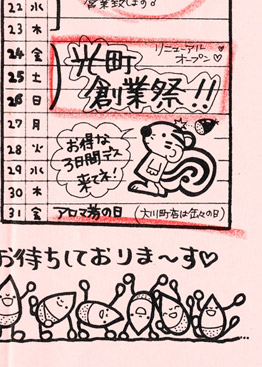 営業致します。
22 水
23 木
24 金
25 土
26 日
リニューアル
オープン♡
光町
創業祭!!
27 月
28 火
29 水
30 木
お得な
3日間デス
来てネ!
31 金 アロマ芳の日 (大川町店は缶々の日)
お待ちしておりま〜す♡